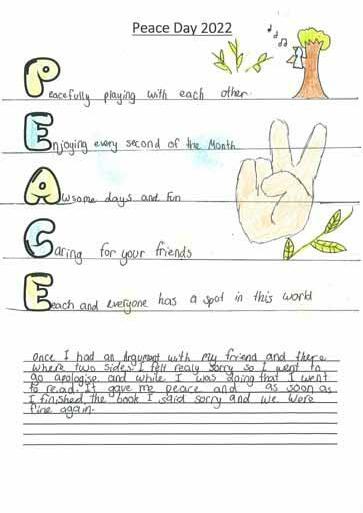 Peace Day 2022
Peacefully playing with each other.
Enjoying every second of the Month
Awsome days and fun
Caring for your friends
Eeach and everyone has a spot in this world
once I had an Argument with my friend and there
where two sides I felt realy sorry so I went to
go apologise and while I was doing that I went
to read. It gave me peace and as soon as
I finished the book I said sorry and we were
fine again.